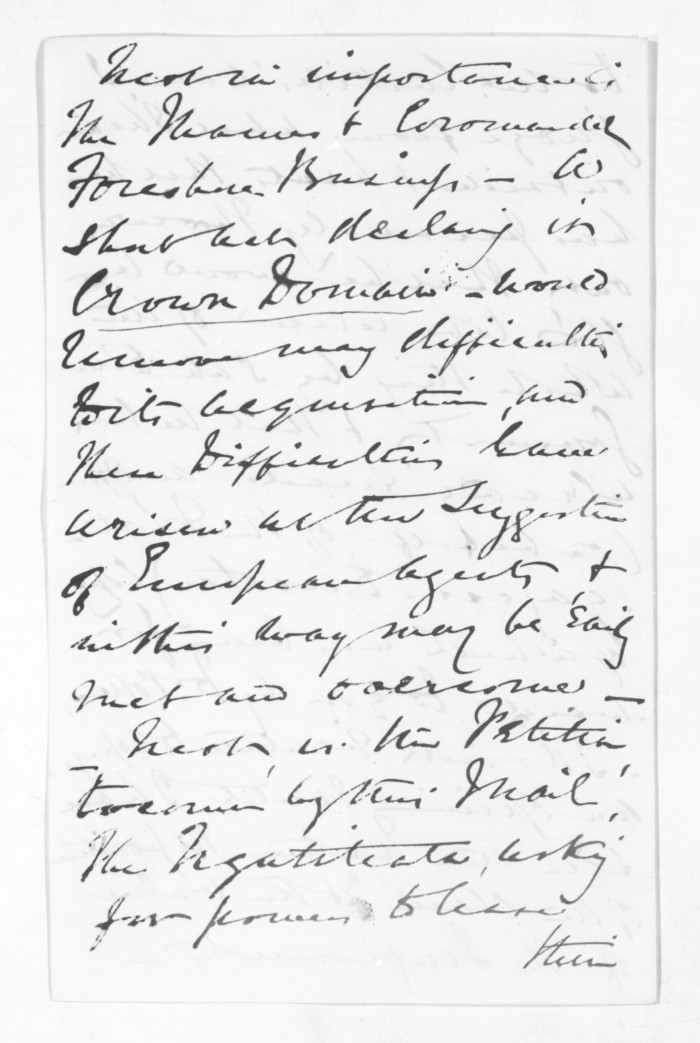 Next in importance is
the Thames & Coromandel
Foreshore Business – A
short act declaring it
Crown Domain – would
remove many difficulties
to its acquisition, and
these Difficulties have
arisen at the Suggestion
of European agents, &
in this way may be Easily
met and overcome –
Next, is the Petition,
to come by this Mail,
the Ngatitiata, asking
for power to lease
their